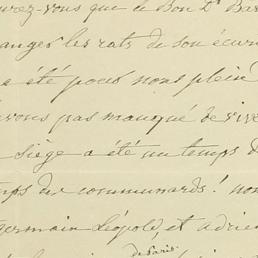 vous que le Bon Dr
manger les rats de son écurie
a été pour nous plein
avons pas manqué de vivre
siège a été un temps de
temps des communards! nou
germain Léopold, et adrien
de Paris.